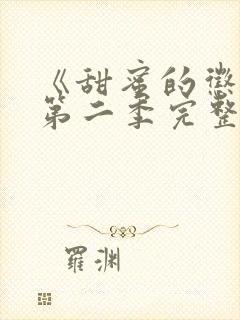 《甜蜜的惩
第二季完整
羅渊